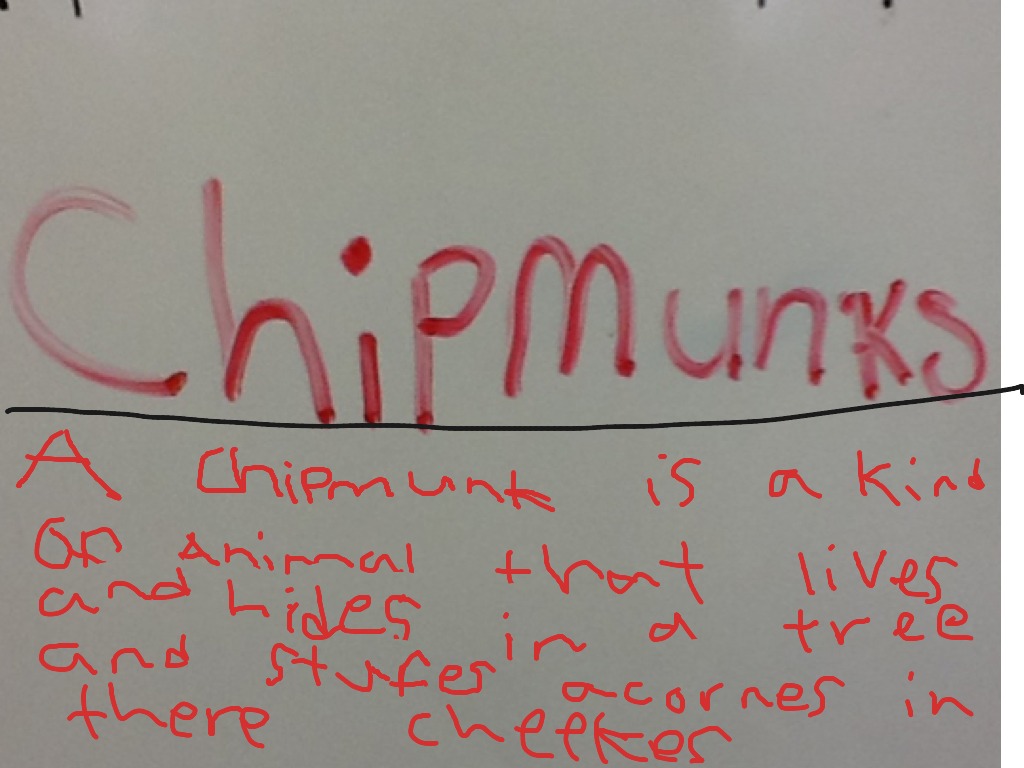 Chipmunks
A Chipmunk is a kind
of animal that lives
and hides in a tree
and stufes acornes in
there cheekes